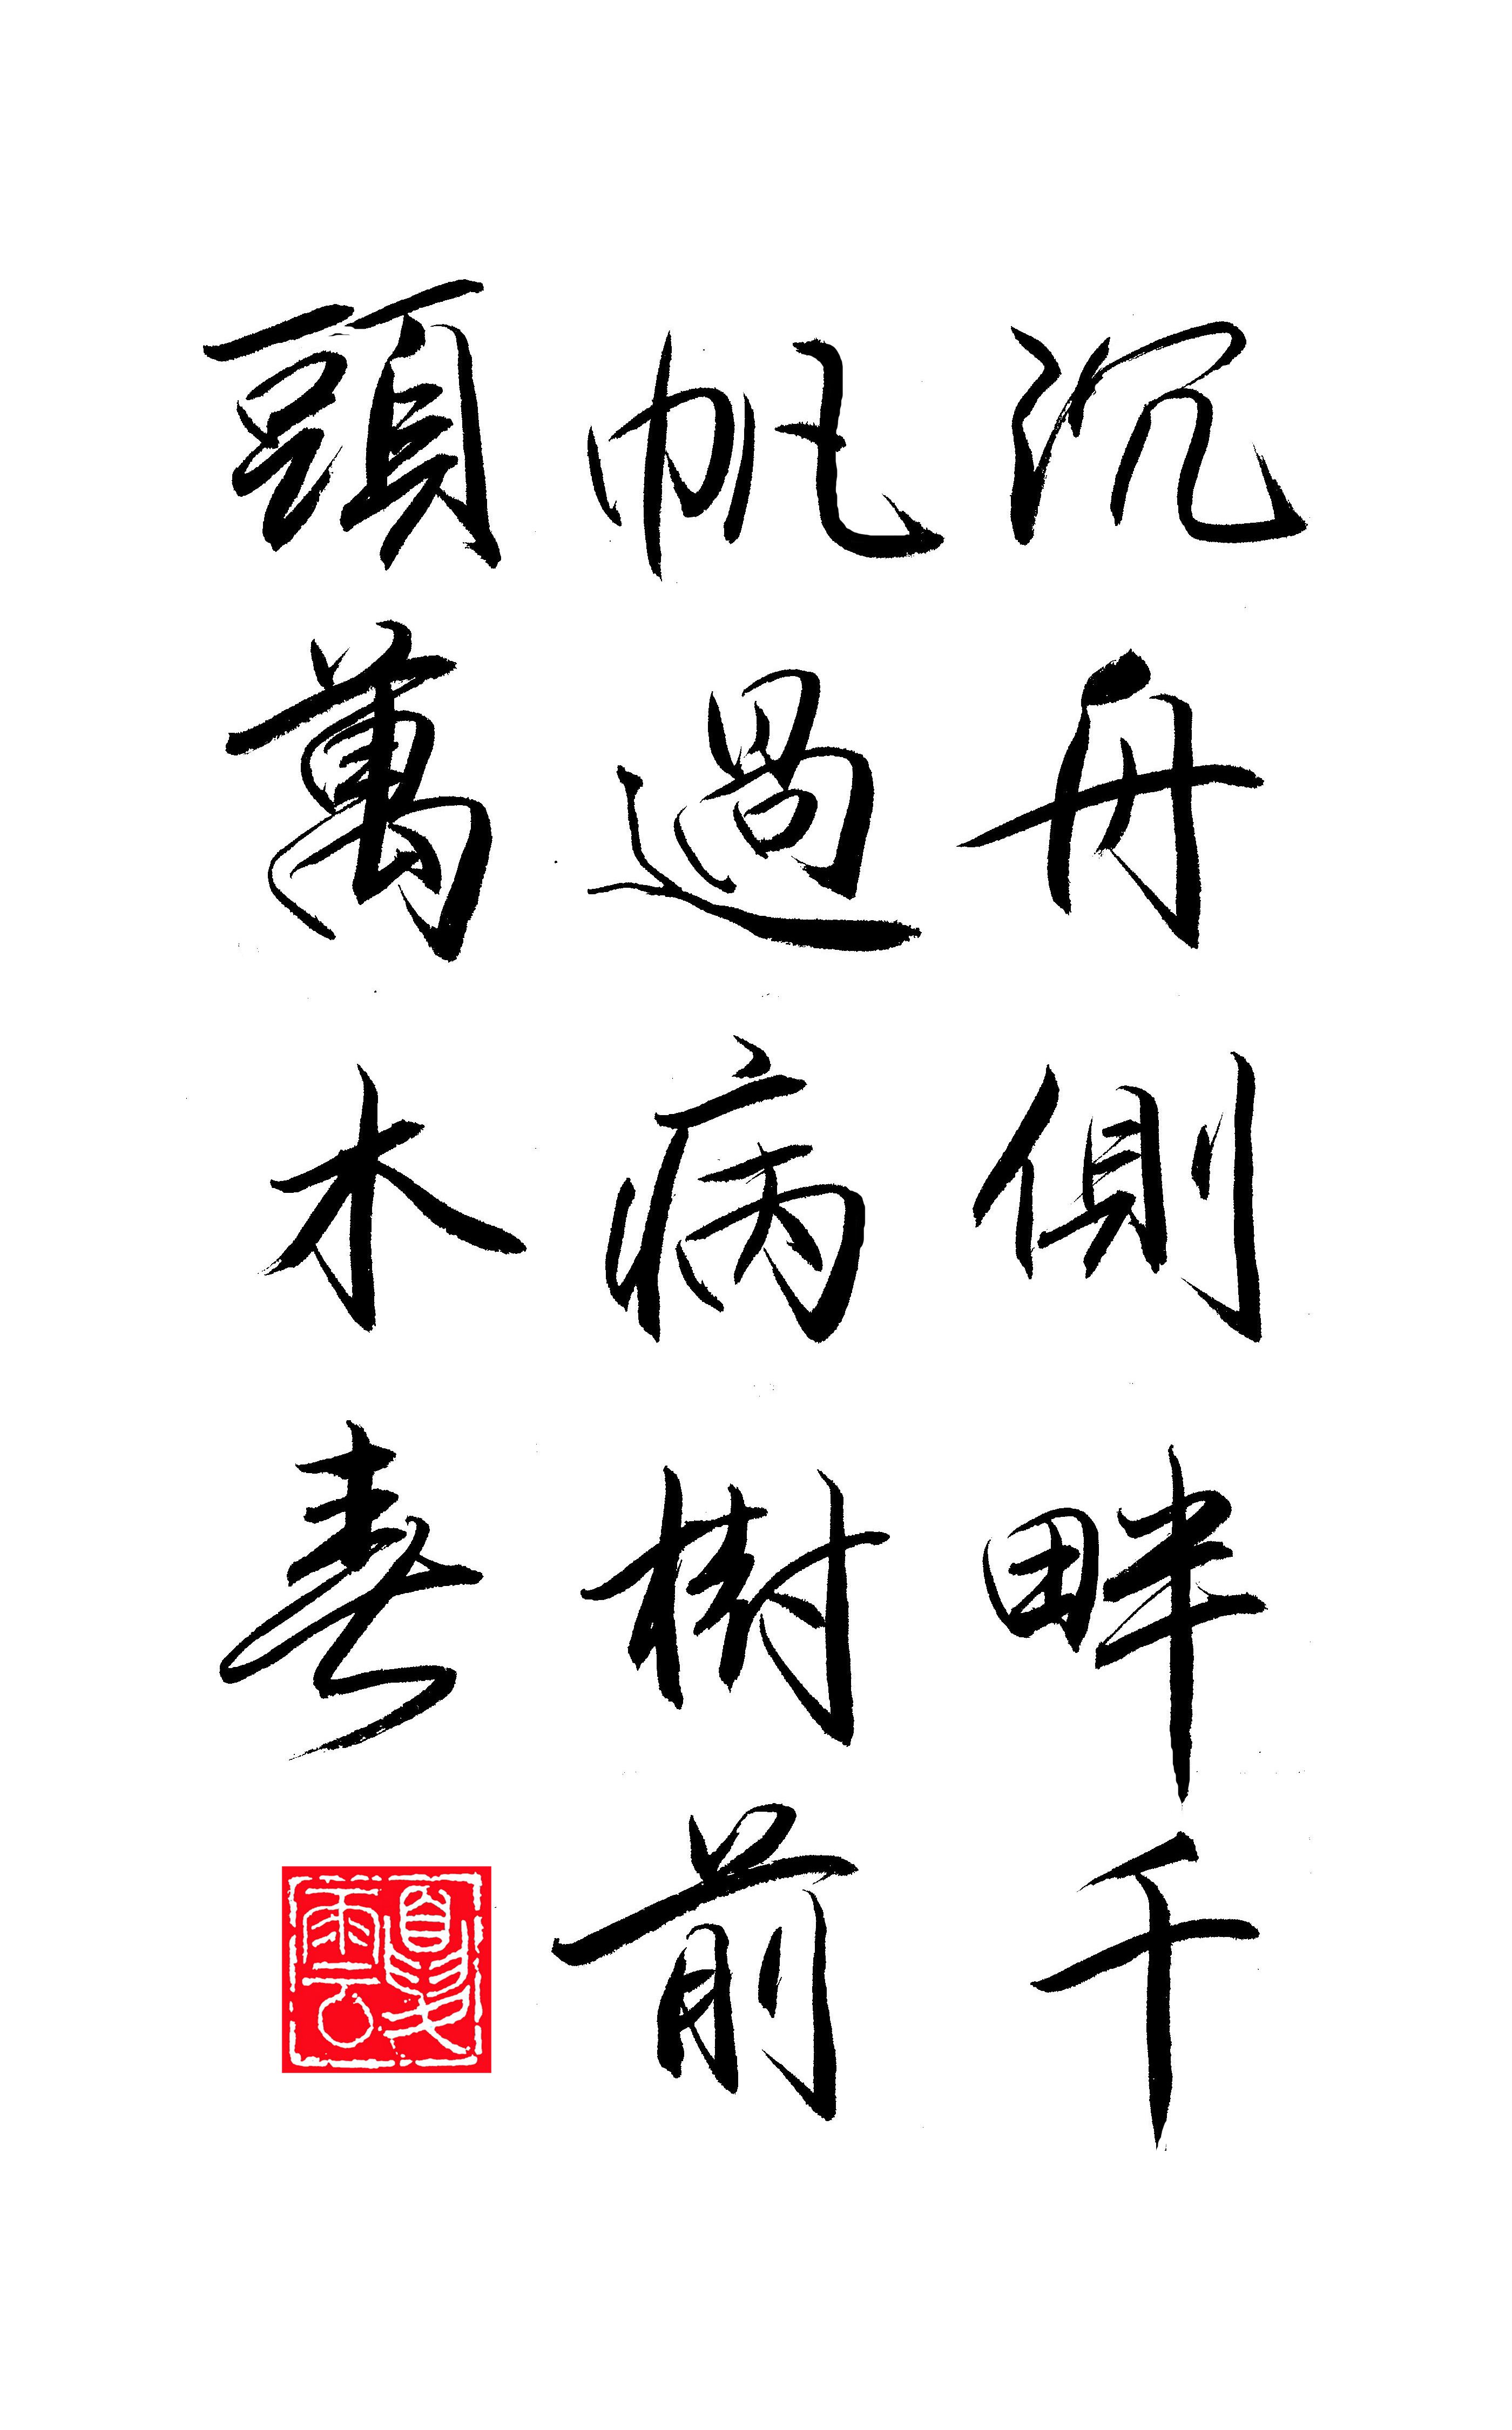 沉舟側畔千
帆過病樹前
頭萬木春
夏雲